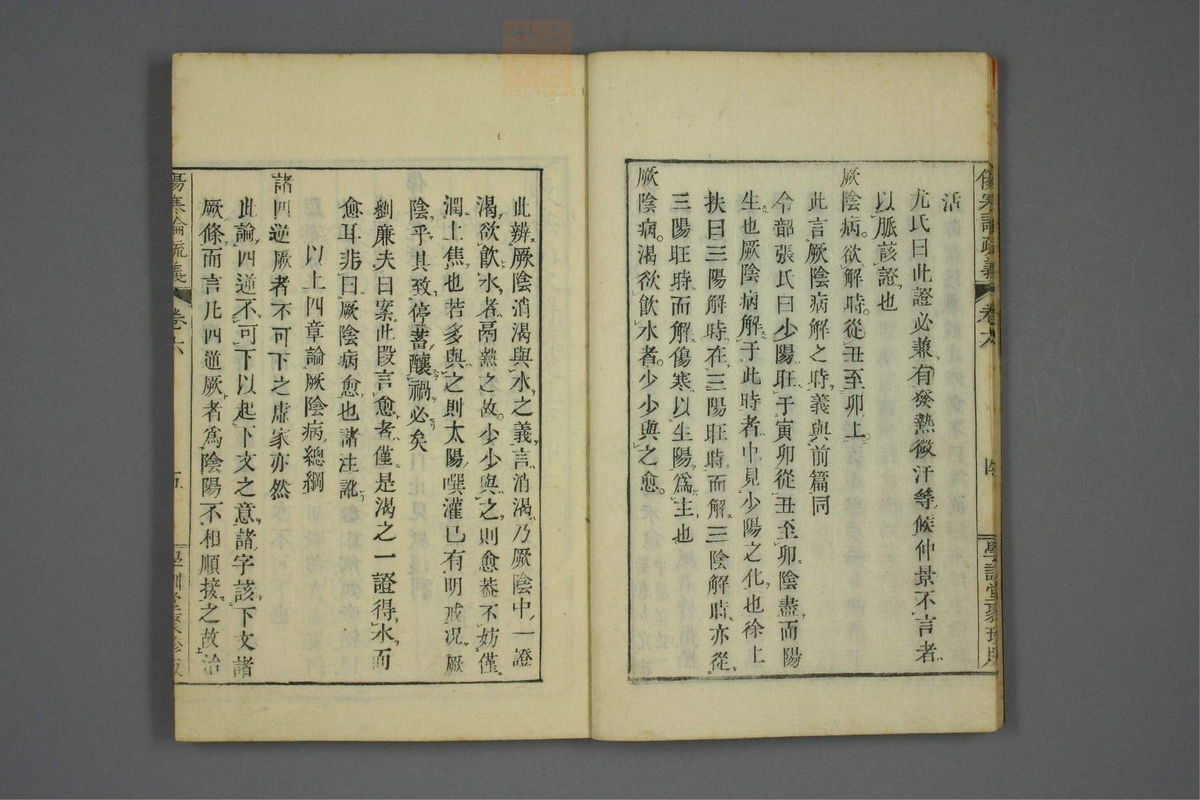 傷寒論疏義 卷六 四 學訓堂聚珍版
活
尤氏曰此證必兼有發熱微汗等候仲景不言者
以脈該證也
厥陰病欲解時從丑至卯上
此言厥陰病解之時義與前篇同
令韶張氏曰少陽旺于寅卯從丑至卯陰盡而陽
生也厥陰病解于此時者中見少陽之化也徐上
扶曰三陽解時在三陽旺時而解三陰解時亦從
三陽旺時而解傷寒以生陽爲主也
厥陰病渴欲飮水者少少與之愈
此辨厥陰消渴與水之義言消渴乃厥陰中一證
渴欲飮水者鬲熱之故少少與之則愈蓋不妨僅
潤上焦也若多與之則太陽噀灌已有明戒况厥
陰乎其致停蓄釀禍必矣
劉廉夫曰案此段言愈者僅是渴之一證得水而
愈耳非曰厥陰病愈也諸注訛
以上四章論厥陰病總綱
諸四逆厥者不可下之虛家亦然
此論四逆不可下以起下文之意諸字該下文諸
厥條而言凡四逆厥者爲陰陽不相順接之故治
傷寒論疏義 卷六 五 學訓堂聚珍版